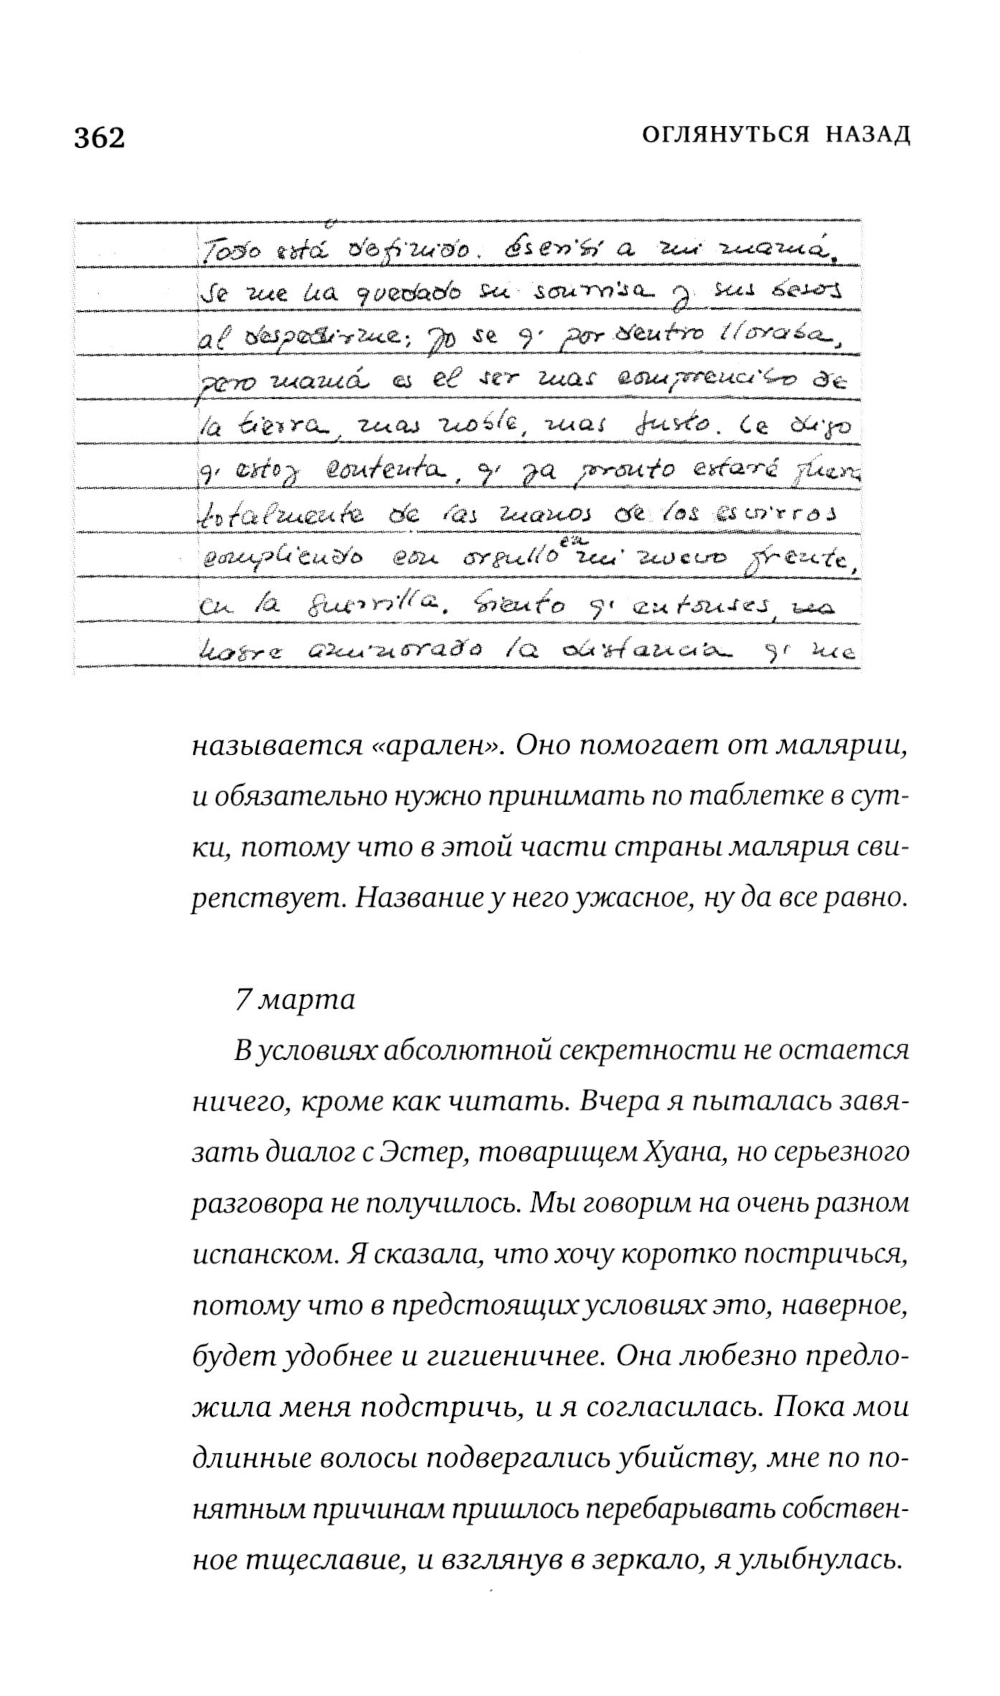 362
ОГЛЯНУТЬСЯ НАЗАД
Todo está definido. Escribí a mi mamá,
Se me ha quedado su sonrisa y sus besos
al despedirme; yo se q' por dentro lloraba,
pero mamá es el ser mas comprencibo de
la tierra, mas noble, mas justo. Le digo
q' estoy contenta, q' ya pronto estaré fuera
totalmente de las manos de los esvirros
compliendo con orgullo en mi nuevo frente,
en la guerrilla. Siento q' entonses,
habre aminorado la distancia q' me
называется «арален». Оно помогает от малярии,
и обязательно нужно принимать по таблетке в сут-
ки, потому что в этой части страны малярия сви-
репствует. Название у него ужасное, ну да все равно.
7 марта
В условиях абсолютной секретности не остается
ничего, кроме как читать. Вчера я пыталась завя-
зать диалог с Эстер, товарищем Хуана, но серьезного
разговора не получилось. Мы говорим на очень разном
испанском. Я сказала, что хочу коротко постричься,
потому что в предстоящих условиях это, наверное,
будет удобнее и гигиеничнее. Она любезно предло-
жила меня подстричь, и я согласилась. Пока мои
длинные волосы подвергались убийству, мне по по-
нятным причинам пришлось перебарывать собствен-
ное тщеславие, и взглянув в зеркало, я улыбнулась.